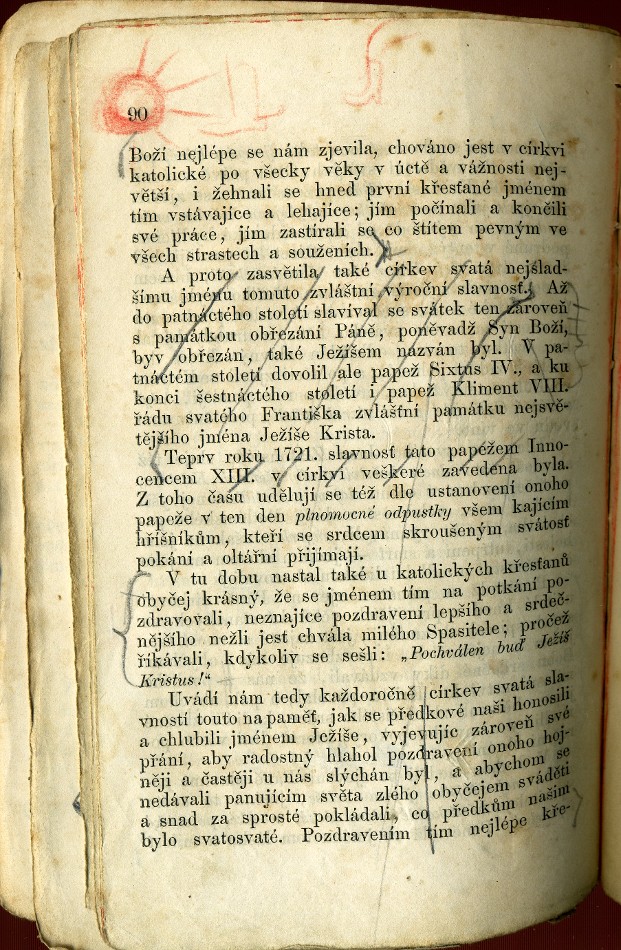 90
Boží nejlépe se nám zjevila, chováno jest v církvi
katolické po všecky věky v úctě a vážnosti nej-
větší, i žehnali se hned první křesťané jménem
tím vstávajíce a lehajíce; jím počínali a končili
své práce, jím zastírali se co štítem pevným ve
všech strastech a souženích.
A proto zasvětila také církev svatá nejslad-
šímu jménu tomuto zvláštní výroční slavnosť. Až
do patnáctého století slavíval se svátek ten zároveň
s památkou obřezání Páně, poněvadž Syn Boží,
byv obřezán, také Ježíšem nazván byl. V pa-
tnáctém století dovolil ale papež Sixtus IV., a ku
konci šestnáctého století i papež Kliment VIII.
řádu svatého Františka zvláštní památku nejsvě-
tějšího jména Ježíše Krista.
Teprv roku 1721. slavnosť tato papežem Inno-
cencem XIII. v církvi veškeré zavedena byla.
Z toho času udělují se též dle ustanovení onoho
papeže v ten den plnomocné odpustky všem kajícím
hříšníkům, kteří se srdcem skroušeným svátosť
pokání a oltářní přijímají.
V tu dobu nastal také u katolických křesťanů
obyčej krásný, že se jménem tím na potkání po-
zdravovali, neznajíce pozdravení lepšího a srdeč-
nějšího nežli jest chvála milého Spasitele; pročež
říkávali, kdykoliv se sešli: „Pochválen buď Ježíš
Kristus!“
Uvádí nám tedy každoročně církev svatá sla-
vností touto na paměť, jak se předkové naši honosili
a chlubili jménem Ježíše, vyjevujíc zároveň své
přání, aby radostný hlahol pozdravení onoho hoj-
něji a častěji u nás slýchán byl, a abychom se
nedávali panujícím světa zlého obyčejem sváděti
a snad za sprosté pokládali, co předkům našim
bylo svatosvaté. Pozdravením tím nejlépe kře-